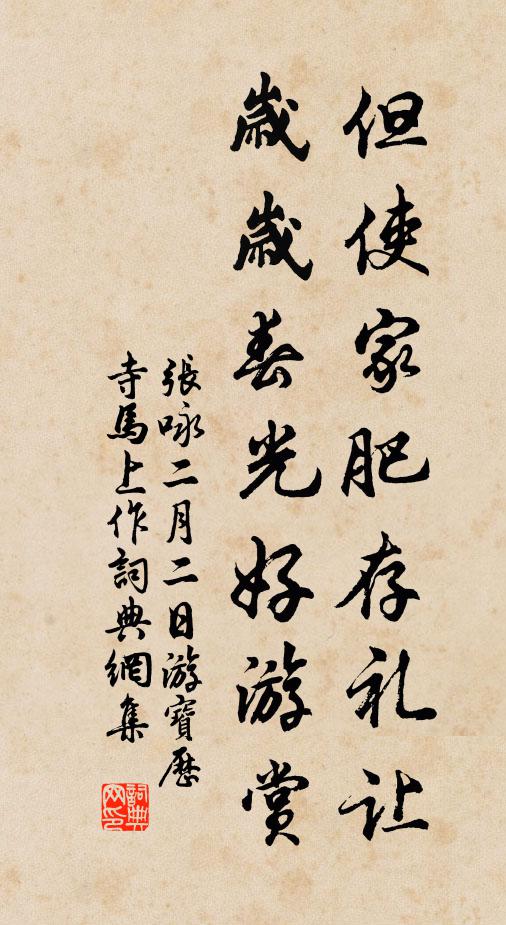 但使家肥存礼让
歲歲春光好游赏
張咏二月二日游寶歷
寺馬上作詞典網集
詞典网印